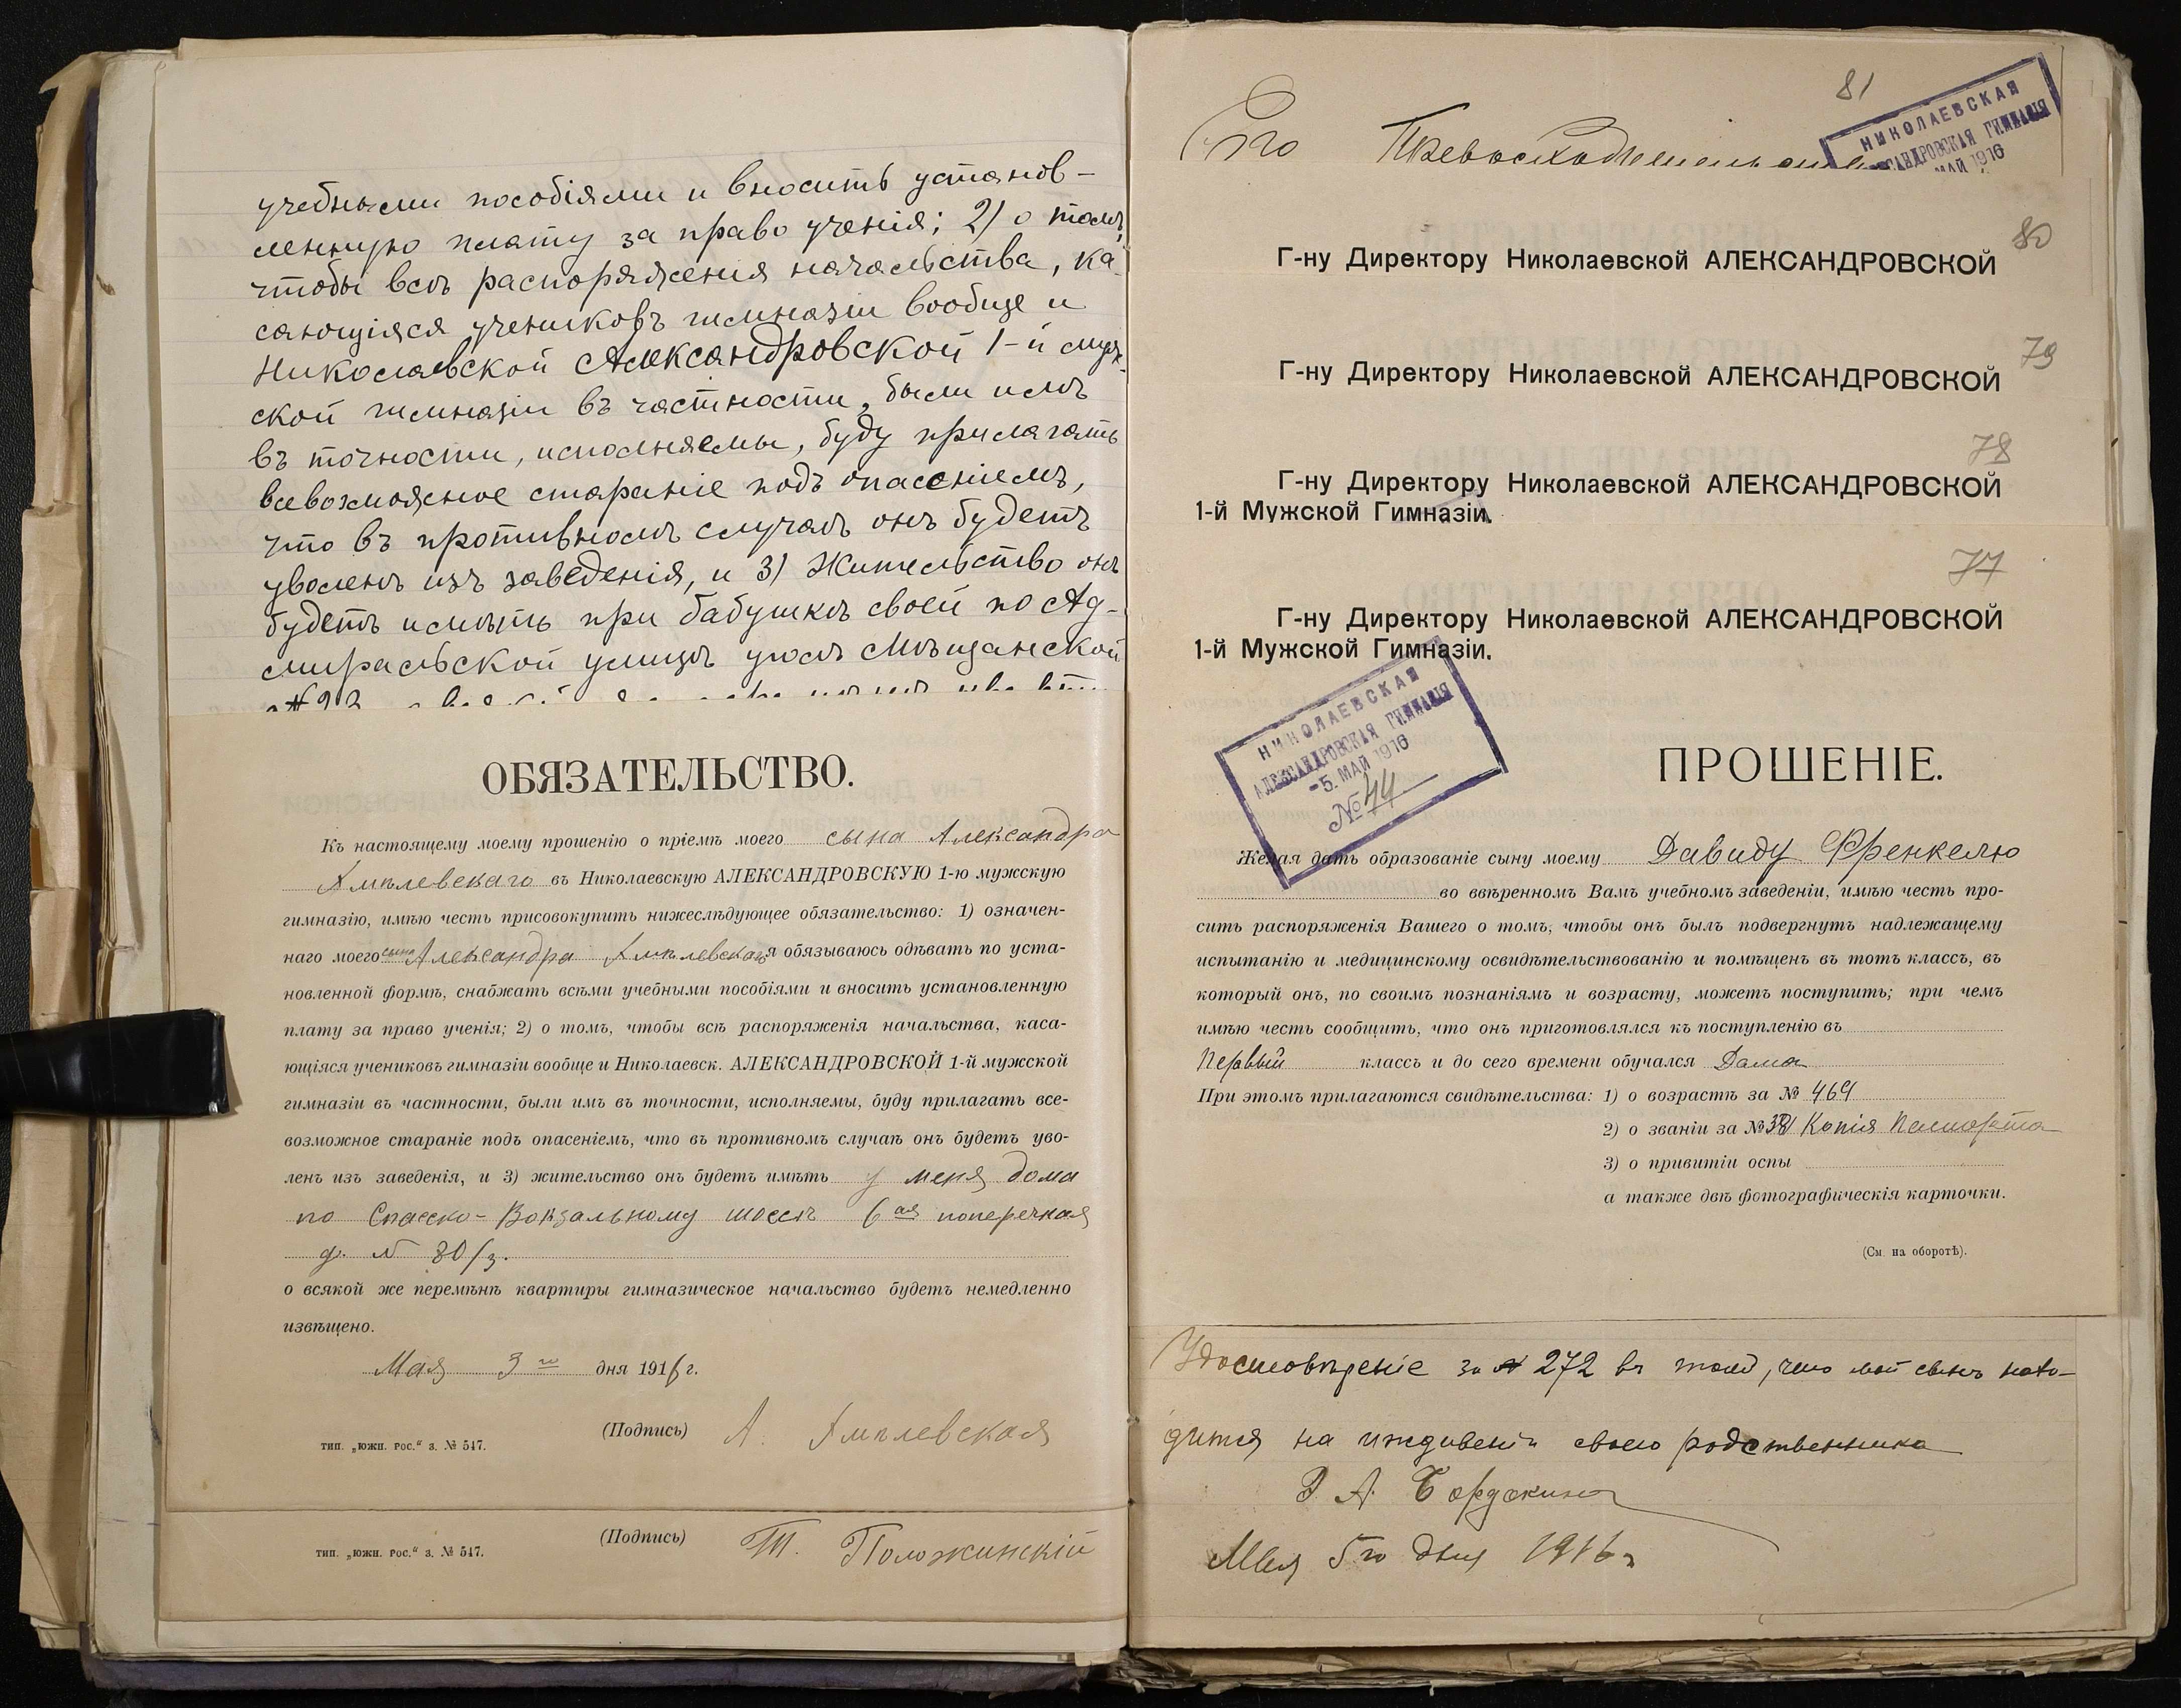 учебными пособіями и вносить установ-
ленную плату за право ученія; 2) о томъ,
чтобы всѣ распоряженія начальства, ка-
сающіяся учениковъ гимназіи вообще и
Николаевской Александровской 1-й муж-
ской гимназіи въ частности, были имъ
въ точности, исполняемы, буду прилагать
всевозможное стараніе подъ опасеніемъ,
что въ противномъ случаѣ онъ будетъ
уволенъ изъ заведенія, и 3) Жительство онъ
будетъ имѣть при бабушкѣ своей по Ад-
миральской улицѣ уголъ Мѣщанской
ОБЯЗАТЕЛЬСТВО.
Къ настоящему моему прошенію о пріемѣ моего сына Александра
Хмѣлевскаго въ Николаевскую АЛЕКСАНДРОВСКУЮ 1-ю мужскую
гимназію, имѣю честь присовокупить нижеслѣдующее обязательство: 1) означен-
наго моего сына Александра Хмѣлевскаго я обязываюсь одѣвать по уста-
новленной формѣ, снабжать всѣми учебными пособіями и вносить установленную
плату за право ученія; 2) о томъ, чтобы всѣ распоряженія начальства, каса-
ющіяся учениковъ гимназіи вообще и Николаевск. АЛЕКСАНДРОВСКОЙ 1-й мужской
гимназіи въ частности, были имъ въ точности, исполняемы, буду прилагать все-
возможное стараніе подъ опасеніемъ, что въ противномъ случаѣ онъ будетъ уво-
ленъ изъ заведенія, и 3) жительство онъ будетъ имѣть у меня дома
по Спасско-Вокзальному шоссе 6ая поперечная
д. № 30/3.
о всякой же перемѣнѣ квартиры гимназическое начальство будетъ немедленно
извѣщено.
Мая 3го дня 1916 г.
(Подпись) А. Хмѣлевская
тип. „южн. рос.“ з. № 547.
(Подпись) Т. Положинскій
тип. „южн. рос.“ з. № 547.
81
Его Превосходительству
НИКОЛАЕВСКАЯ
АЛЕКСАНДРОВСКАЯ ГИМНАЗІЯ
МАЙ 1916
80
Г-ну Директору Николаевской АЛЕКСАНДРОВСКОЙ
79
Г-ну Директору Николаевской АЛЕКСАНДРОВСКОЙ
78
Г-ну Директору Николаевской АЛЕКСАНДРОВСКОЙ
1-й Мужской Гимназіи.
77
Г-ну Директору Николаевской АЛЕКСАНДРОВСКОЙ
1-й Мужской Гимназіи.
НИКОЛАЕВСКАЯ
АЛЕКСАНДРОВСКАЯ ГИМНАЗІЯ
-5. МАЙ 1916
№ 44
ПРОШЕНІЕ.
Желая дать образованіе сыну моему Давиду Френкелю
во ввѣренномъ Вамъ учебномъ заведеніи, имѣю честь про-
сить распоряженія Вашего о томъ, чтобы онъ былъ подвергнутъ надлежащему
испытанію и медицинскому освидѣтельствованію и помѣщенъ въ тотъ классъ, въ
который онъ, по своимъ познаніямъ и возрасту, можетъ поступить; при чемъ
имѣю честь сообщить, что онъ приготовлялся къ поступленію въ
Первый классъ и до сего времени обучался Дома
При этомъ прилагаются свидѣтельства: 1) о возрастѣ за № 469
2) о званіи за № Копія Паспорта
3) о привитіи оспы
а также двѣ фотографическія карточки.
(См. на оборотѣ).
Удостовѣреніе за № 272 въ томъ, что мой сынъ нахо-
дится на иждивеніи своего родственника
Мая 5го дня 1916 г